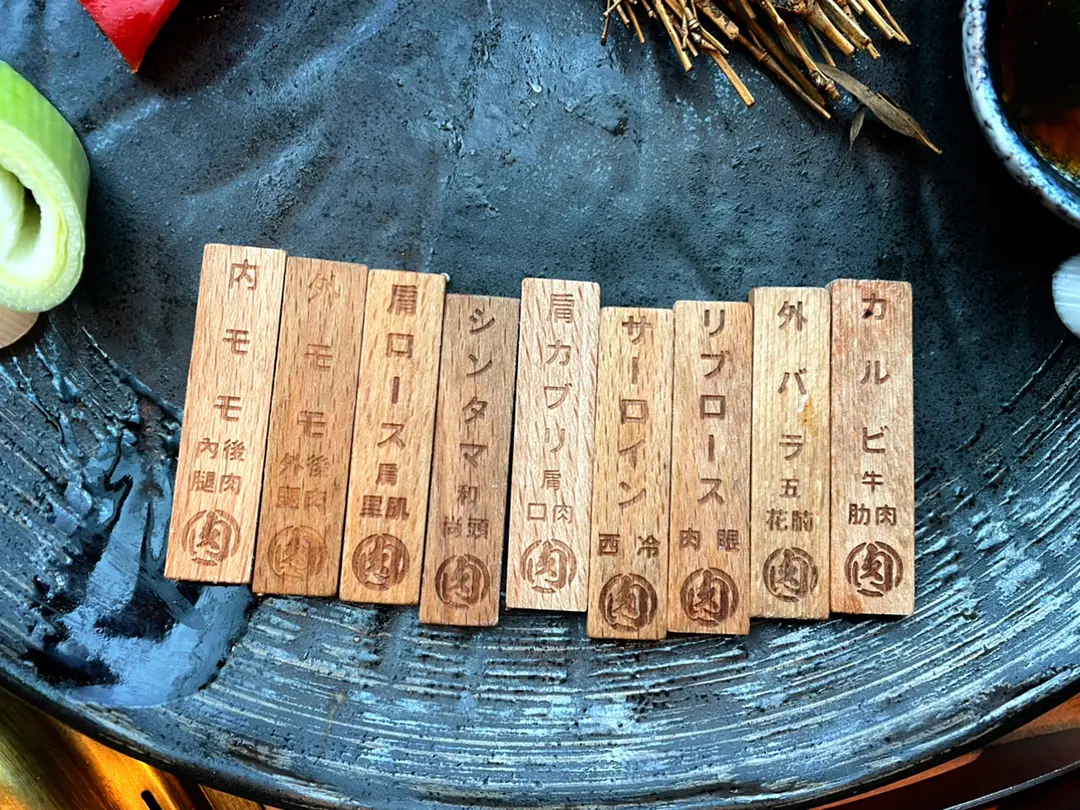 内モモ
內後
腿肉
肉
外モモ
外後
腿肉
肉
肩ロース
肩
里肌
肉
シンタマ
和
尚頭
肉
肩カブリ
肩
口肉
肉
サーロイン
西冷
肉
リブロース
肉眼
肉
外バラ
五
花腩
肉
カルビ
牛
肋肉
肉